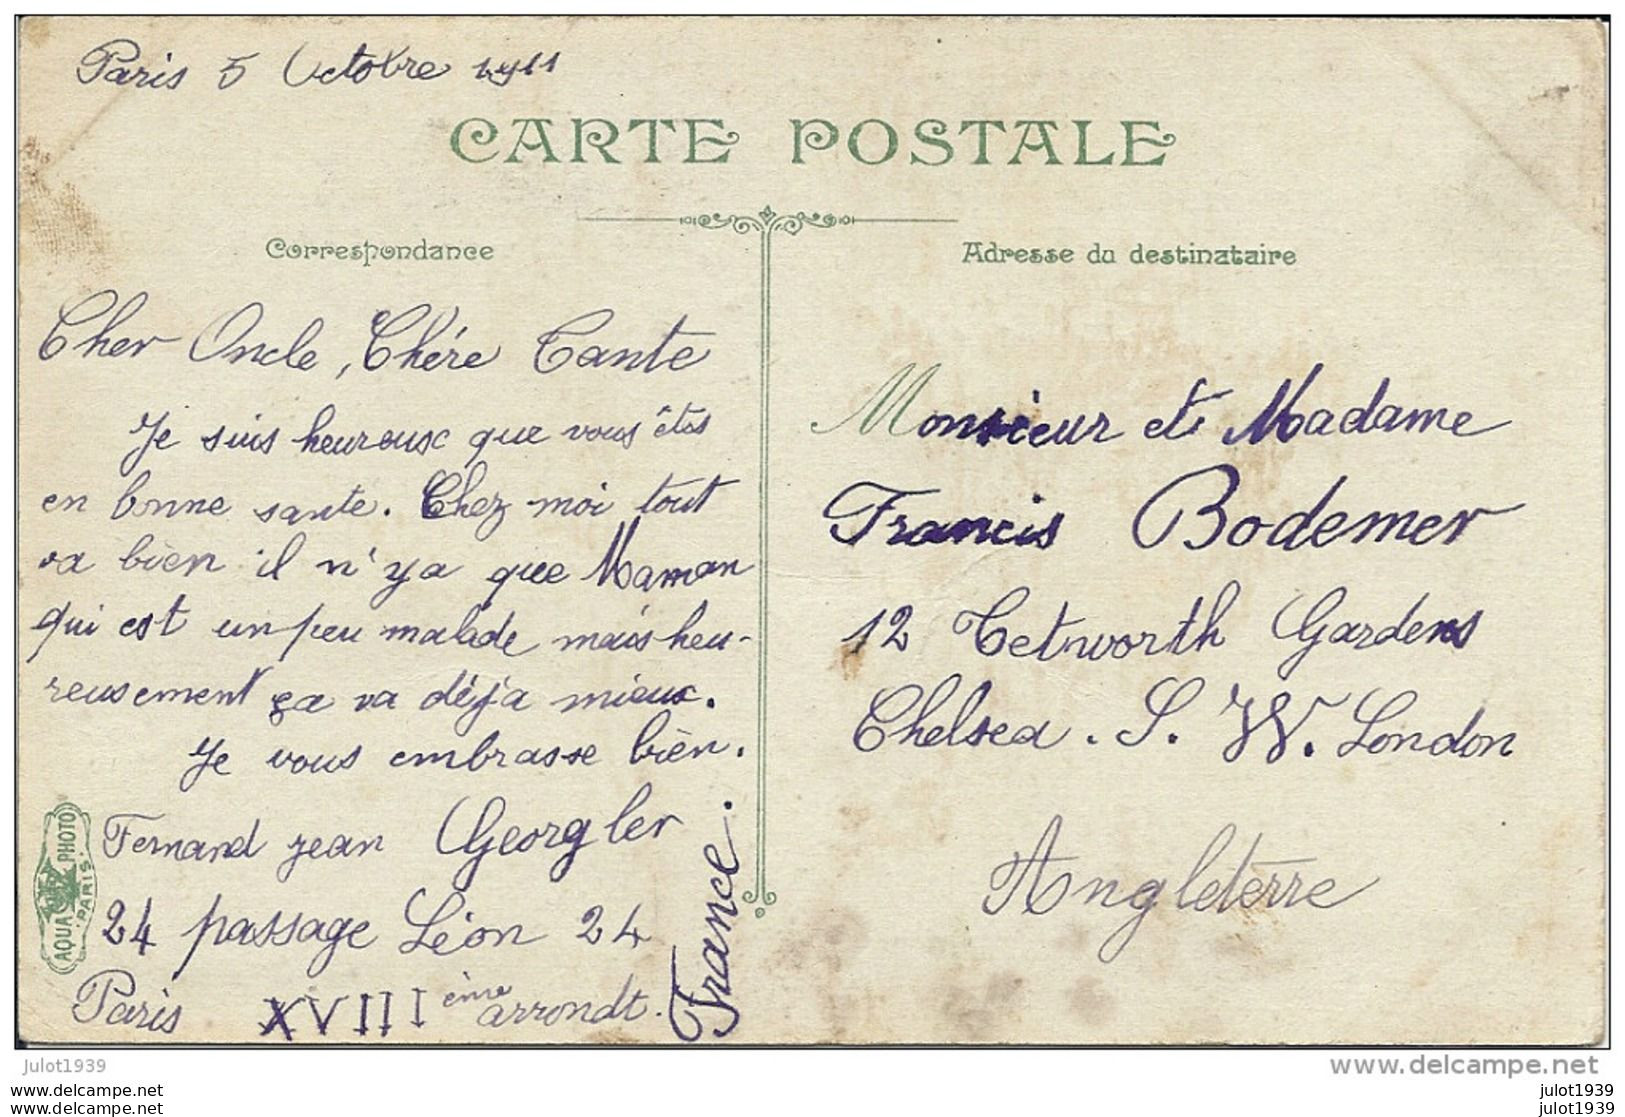 Paris 5 Octobre 1911
CARTE POSTALE
Correspondance
Cher Oncle, Chére Tante
Je suis heureuse que vous êtes
en bonne sante. Chez moi tout
va bien il n'ya que Maman
qui est un peu malade mais heu-
reusement ça va déja mieux.
Je vous embrasse bien.
Fernand jean Georgler
24 passage Léon 24
Paris XVIII ème arrondt.
France.
AQUA PHOTO
PARIS
Adresse du destinataire
Monsieur et Madame
Francis Bodemer
12 Tetworth Gardens
Chelsea. S. W. London
Angleterre
julot1939
www.delcampe.net
julot1939
julot1939
julot1939
julot1939